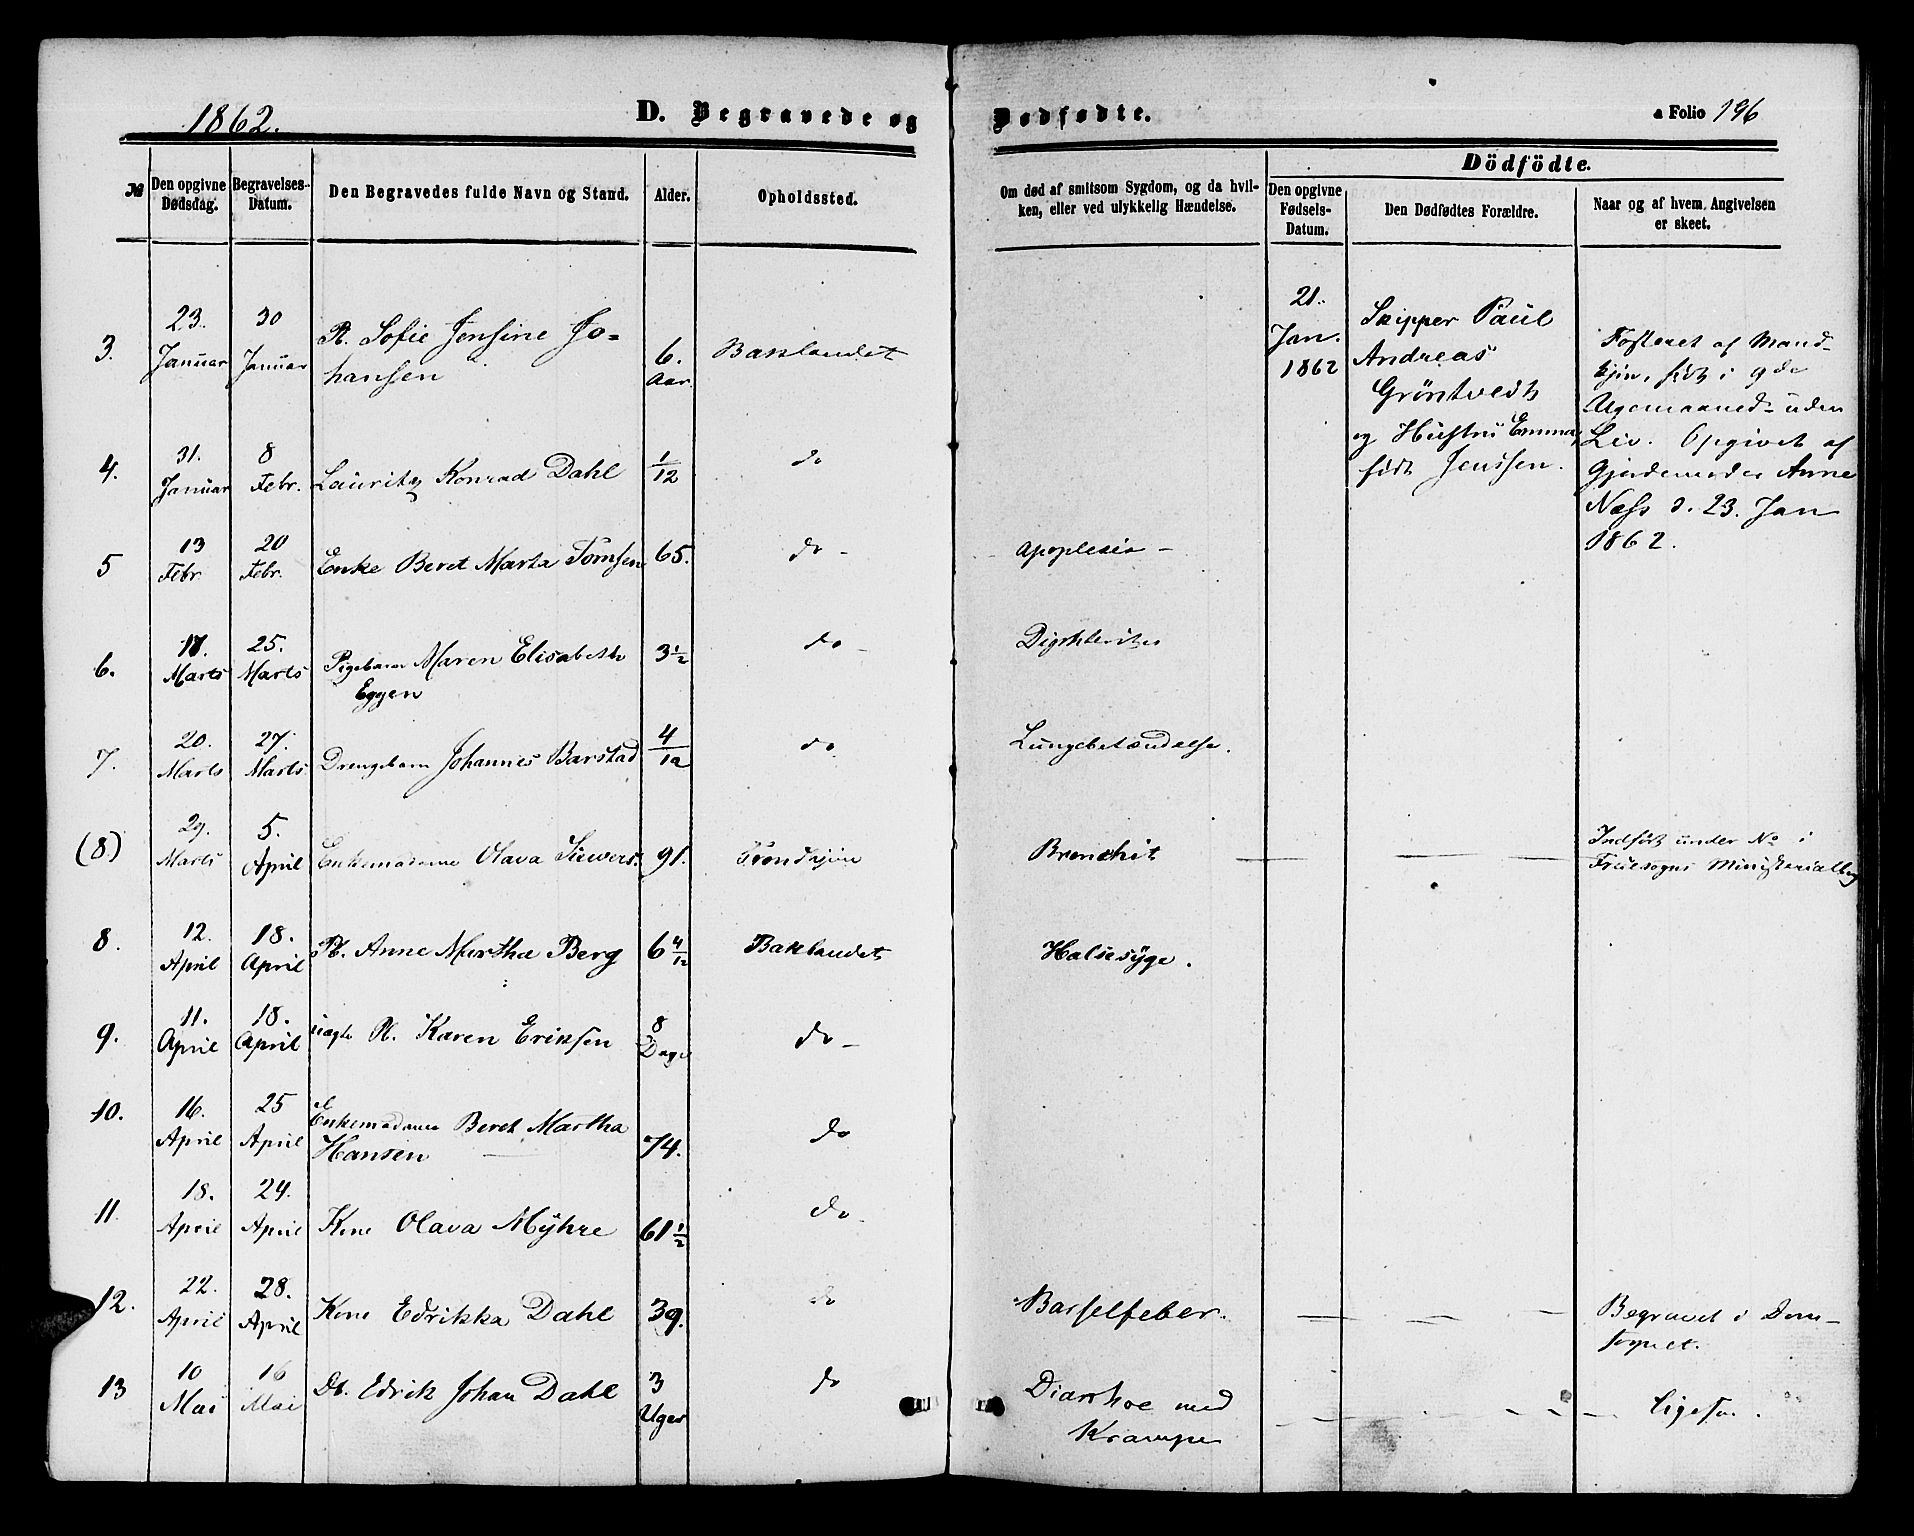 1862.
D. Begravede og Dødfødte.
a Folio 196
Dödfödte.
№
Den opgivne Dødsdag.
Begravelses-Datum.
Den Begravedes fulde Navn og Stand.
Alder.
Opholdssted.
Om død af smitsom Sygdom, og da hvil-
ken, eller ved ulykkelig Hændelse.
Den opgivne Fødsels-Datum.
Den Dødfødtes Forældre.
Naar og af hvem Angivelsen
er skeet.
3. 23. Januar 30 Januar P. Sofie Jensine Jo-
hansen 6. Aar. Baklandet
21. Jan. 1862
Skipper Paul
Andreas
Grøntvedt
og Hustru Emma,
født Jenssen.
Fosteret af Mand-
kjøn, født i 9de
Ugemaaned uden
Liv. Opgivet af
Gjordemoder Anne
Næss d. 23. Jan
1862.
4. 31. Januar 8 Febr. Lauritz Konrad Dahl 1/12 do
5 13 Febr. 20 Febr. Enke Beret Marta Tomsen 65. do - Apoplexie -
6. 17. Marts 25. Marts Pigebarn Maren Elisabeth
Eggen 3 1/2 do - Dighterites
7. 20. Marts 27. Marts Drengebarn Johannes Barstad 4/12 do Lungebetændelse.
(8) 29. Marts 5. April Enkemadame Olava Siewers. 91. Trondhjem Bronchit
Indført under No i
Fruesogns Ministerialbog
8. 12. April 18. April Pb. Anne Martha Berg 6 4/12 Baklandet Halssyge.
9. 11. April 18. April uægte Pb. Karen Eriksen 8 Dage do -
10. 16. April 25 April Enkemadame Beret Martha
Hansen 74. do
11. 18. April 24. April Kone Olava Myhre 61 1/2 do.
12. 22. April 28. April Kone Edrikka Dahl 39. do Barselfeber.
Begravet i Dom-
sognet.
13 10 Mai 16 Mai Db. Edrik Johan Dahl 3 Uger do Diarrhoe med
Krampe
Ligesaa.